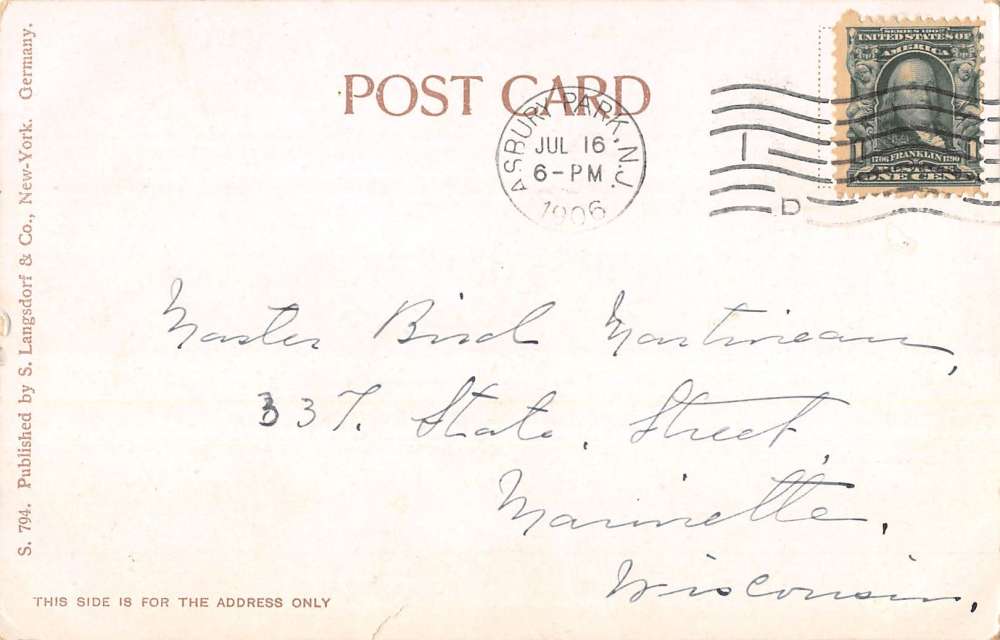 POST CARD
ASBURY PARK, N.J.
JUL 16
6-PM
1906
D
SERIES 1902
UNITED STATES OF
AMERICA
1706 FRANKLIN 1790
POSTAGE
ONE CENT
Master Bird Martineau,
337. State. Street,
Marinette,
Wisconsin,
S. 794. Published by S. Langsdorf & Co., New-York. Germany.
THIS SIDE IS FOR THE ADDRESS ONLY